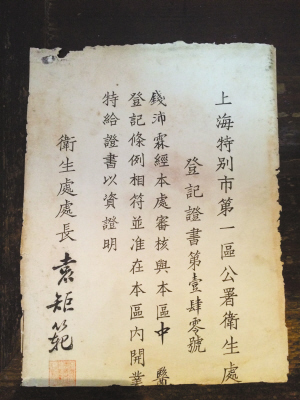 上海特別市第一區公署衛生處
登記證書第壹肆零號
錢沛霖經本處審核與本區中醫
登記條例相符並准在本區內開業
特給證書以資證明
衛生處處長袁矩範